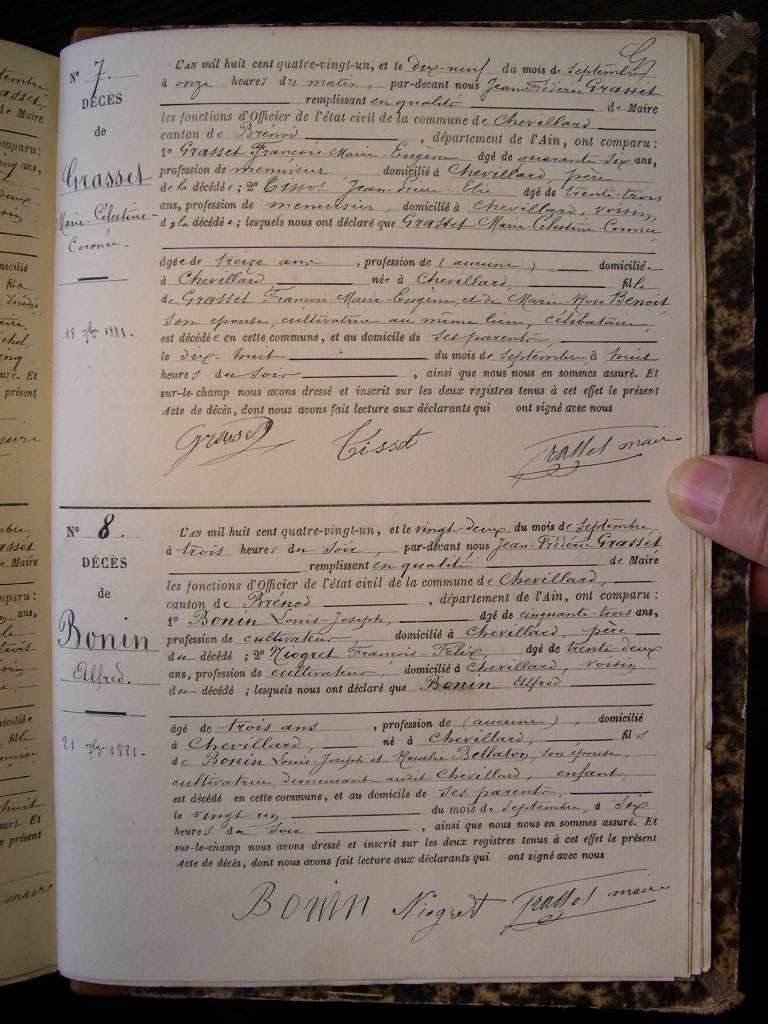 Nº 7.
DÉCÈS
de
Grasset
Marie-Célestine-
Coronée.
18 7bre 1881.
L'AN mil huit cent quatre-vingt-un, et le dix-neuf du mois de Septembre
à onze heures du matin, par-devant nous Jean Frédéric Grasset
remplissant en qualité de Maire
les fonctions d'Officier de l'état civil de la commune de Chevillard
canton de Brénod, département de l'Ain, ont comparu :
1º Grasset François-Marie-Eugène âgé de quarante-six ans,
profession de menuisier domicilié à Chevillard, père
de la décédée ; 2º Tissot Jean-Pierre-Elie âgé de trente-trois
ans, profession de menuisier, domicilié à Chevillard, voisin,
de la décédée ; lesquels nous ont déclaré que Grasset Marie-Célestine-Coronée
âgée de treize ans, profession de (aucune) domiciliée
à Chevillard née à Chevillard, fille
de Grasset François-Marie-Eugène, et de Marie-Rose Benoit
son épouse, cultivatrice au même lieu, célibataire,
est décédée en cette commune, et au domicile de ses parents,
le dix-huit du mois de Septembre, à huit
heures du soir, ainsi que nous nous en sommes assuré. Et
sur-le-champ nous avons dressé et inscrit sur les deux registres tenus à cet effet le présent
Acte de décès, dont nous avons fait lecture aux déclarants qui ont signé avec nous
Grasset Tissot Grasset maire
Nº 8.
DÉCÈS
de
Bonin
Alfred.
21 7bre 1881.
L'AN mil huit cent quatre-vingt-un, et le vingt-deux du mois de Septembre
à trois heures du soir, par-devant nous Jean-Frédéric Grasset
remplissant en qualité de Maire
les fonctions d'Officier de l'état civil de la commune de Chevillard,
canton de Brénod, département de l'Ain, ont comparu :
1º Bonin Louis-Joseph, âgé de cinquante-trois ans,
profession de cultivateur, domicilié à Chevillard, père
du décédé ; 2º Niogret François-Félix, âgé de trente deux
ans, profession de cultivateur, domicilié à Chevillard, voisin
du décédé ; lesquels nous ont déclaré que Bonin Alfred
âgé de trois ans, profession de (aucune), domicilié
à Chevillard, né à Chevillard, fils
de Bonin Louis-Joseph et Rosalie Bellaton, son épouse,
cultivatrice, demeurant audit Chevillard, enfant,
est décédé en cette commune, et au domicile de ses parents,
le vingt-un du mois de Septembre, à six
heures du soir, ainsi que nous nous en sommes assuré. Et
sur-le-champ nous avons dressé et inscrit sur les deux registres tenus à cet effet le présent
Acte de décès, dont nous avons fait lecture aux déclarants qui ont signé avec nous
BONIN Niogret Grasset maire